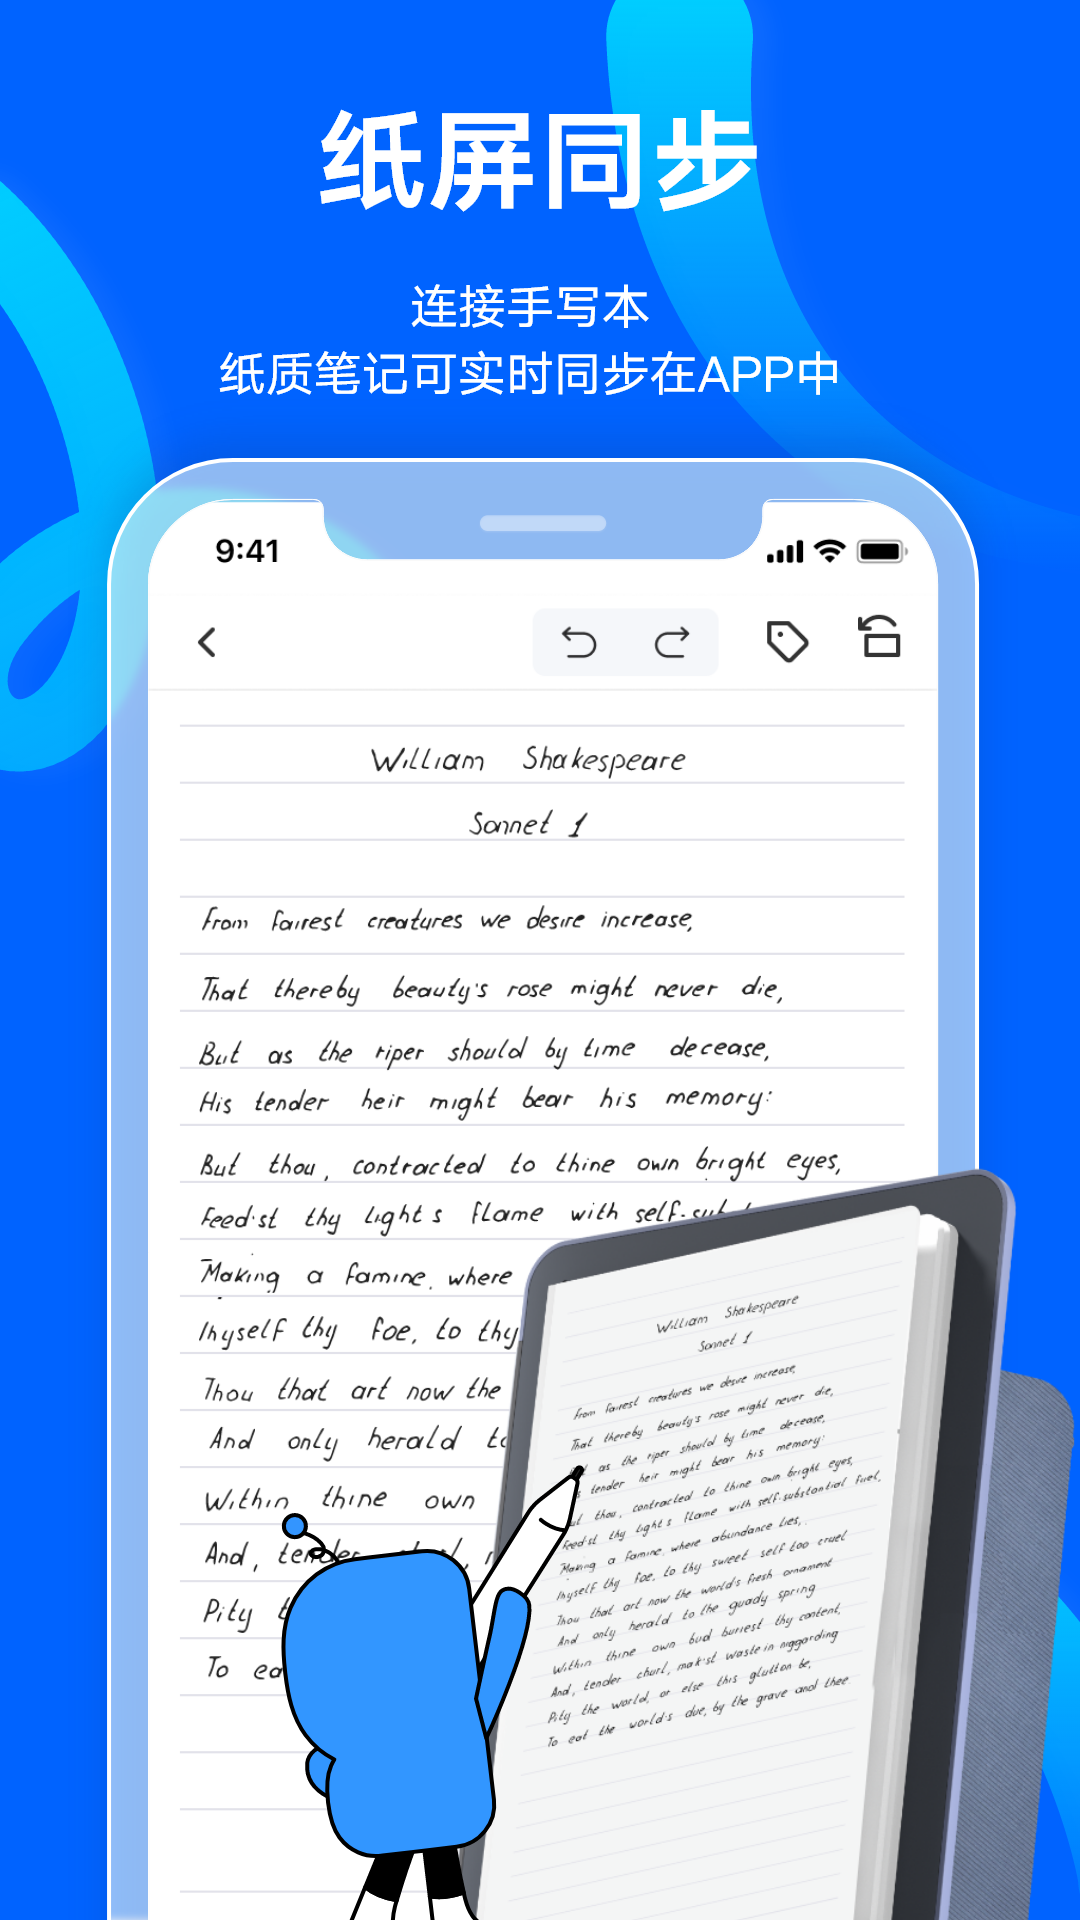 纸屏同步
连接手写本
纸质笔记可实时同步在APP中
9:41
William Shakespeare
Sonnet 1
From fairest creatures we desire increase,
That thereby beauty's rose might never die,
But as the riper should by time decease,
His tender heir might bear his memory:
But thou, contracted to thine own bright eyes,
Feed'st thy light's flame with self-sub
Making a famine, where
Thyself thy foe, to thy
Thou that art now the
And only herald to
Within thine own
And, tender churl,
Pity
To ea
William Shakespeare
Sonnet 1
From fairest creatures we desire increase,
That thereby beauty's rose might never die,
as the riper should by time decease,
tender heir might bear his memory:
thou, contracted to thine own bright eyes,
Feed'st thy light's flame with self-substantial fuel,
Making a famine, where abundance lies,
Thyself thy foe, to thy sweet self too cruel
Thou that art now the world's fresh ornament
And only herald to the gaudy spring
Within thine own bud buriest thy content,
And, tender churl, mak'st waste in niggarding
Pity the world, or else this glutton be,
To eat the world's due, by the grave and thee